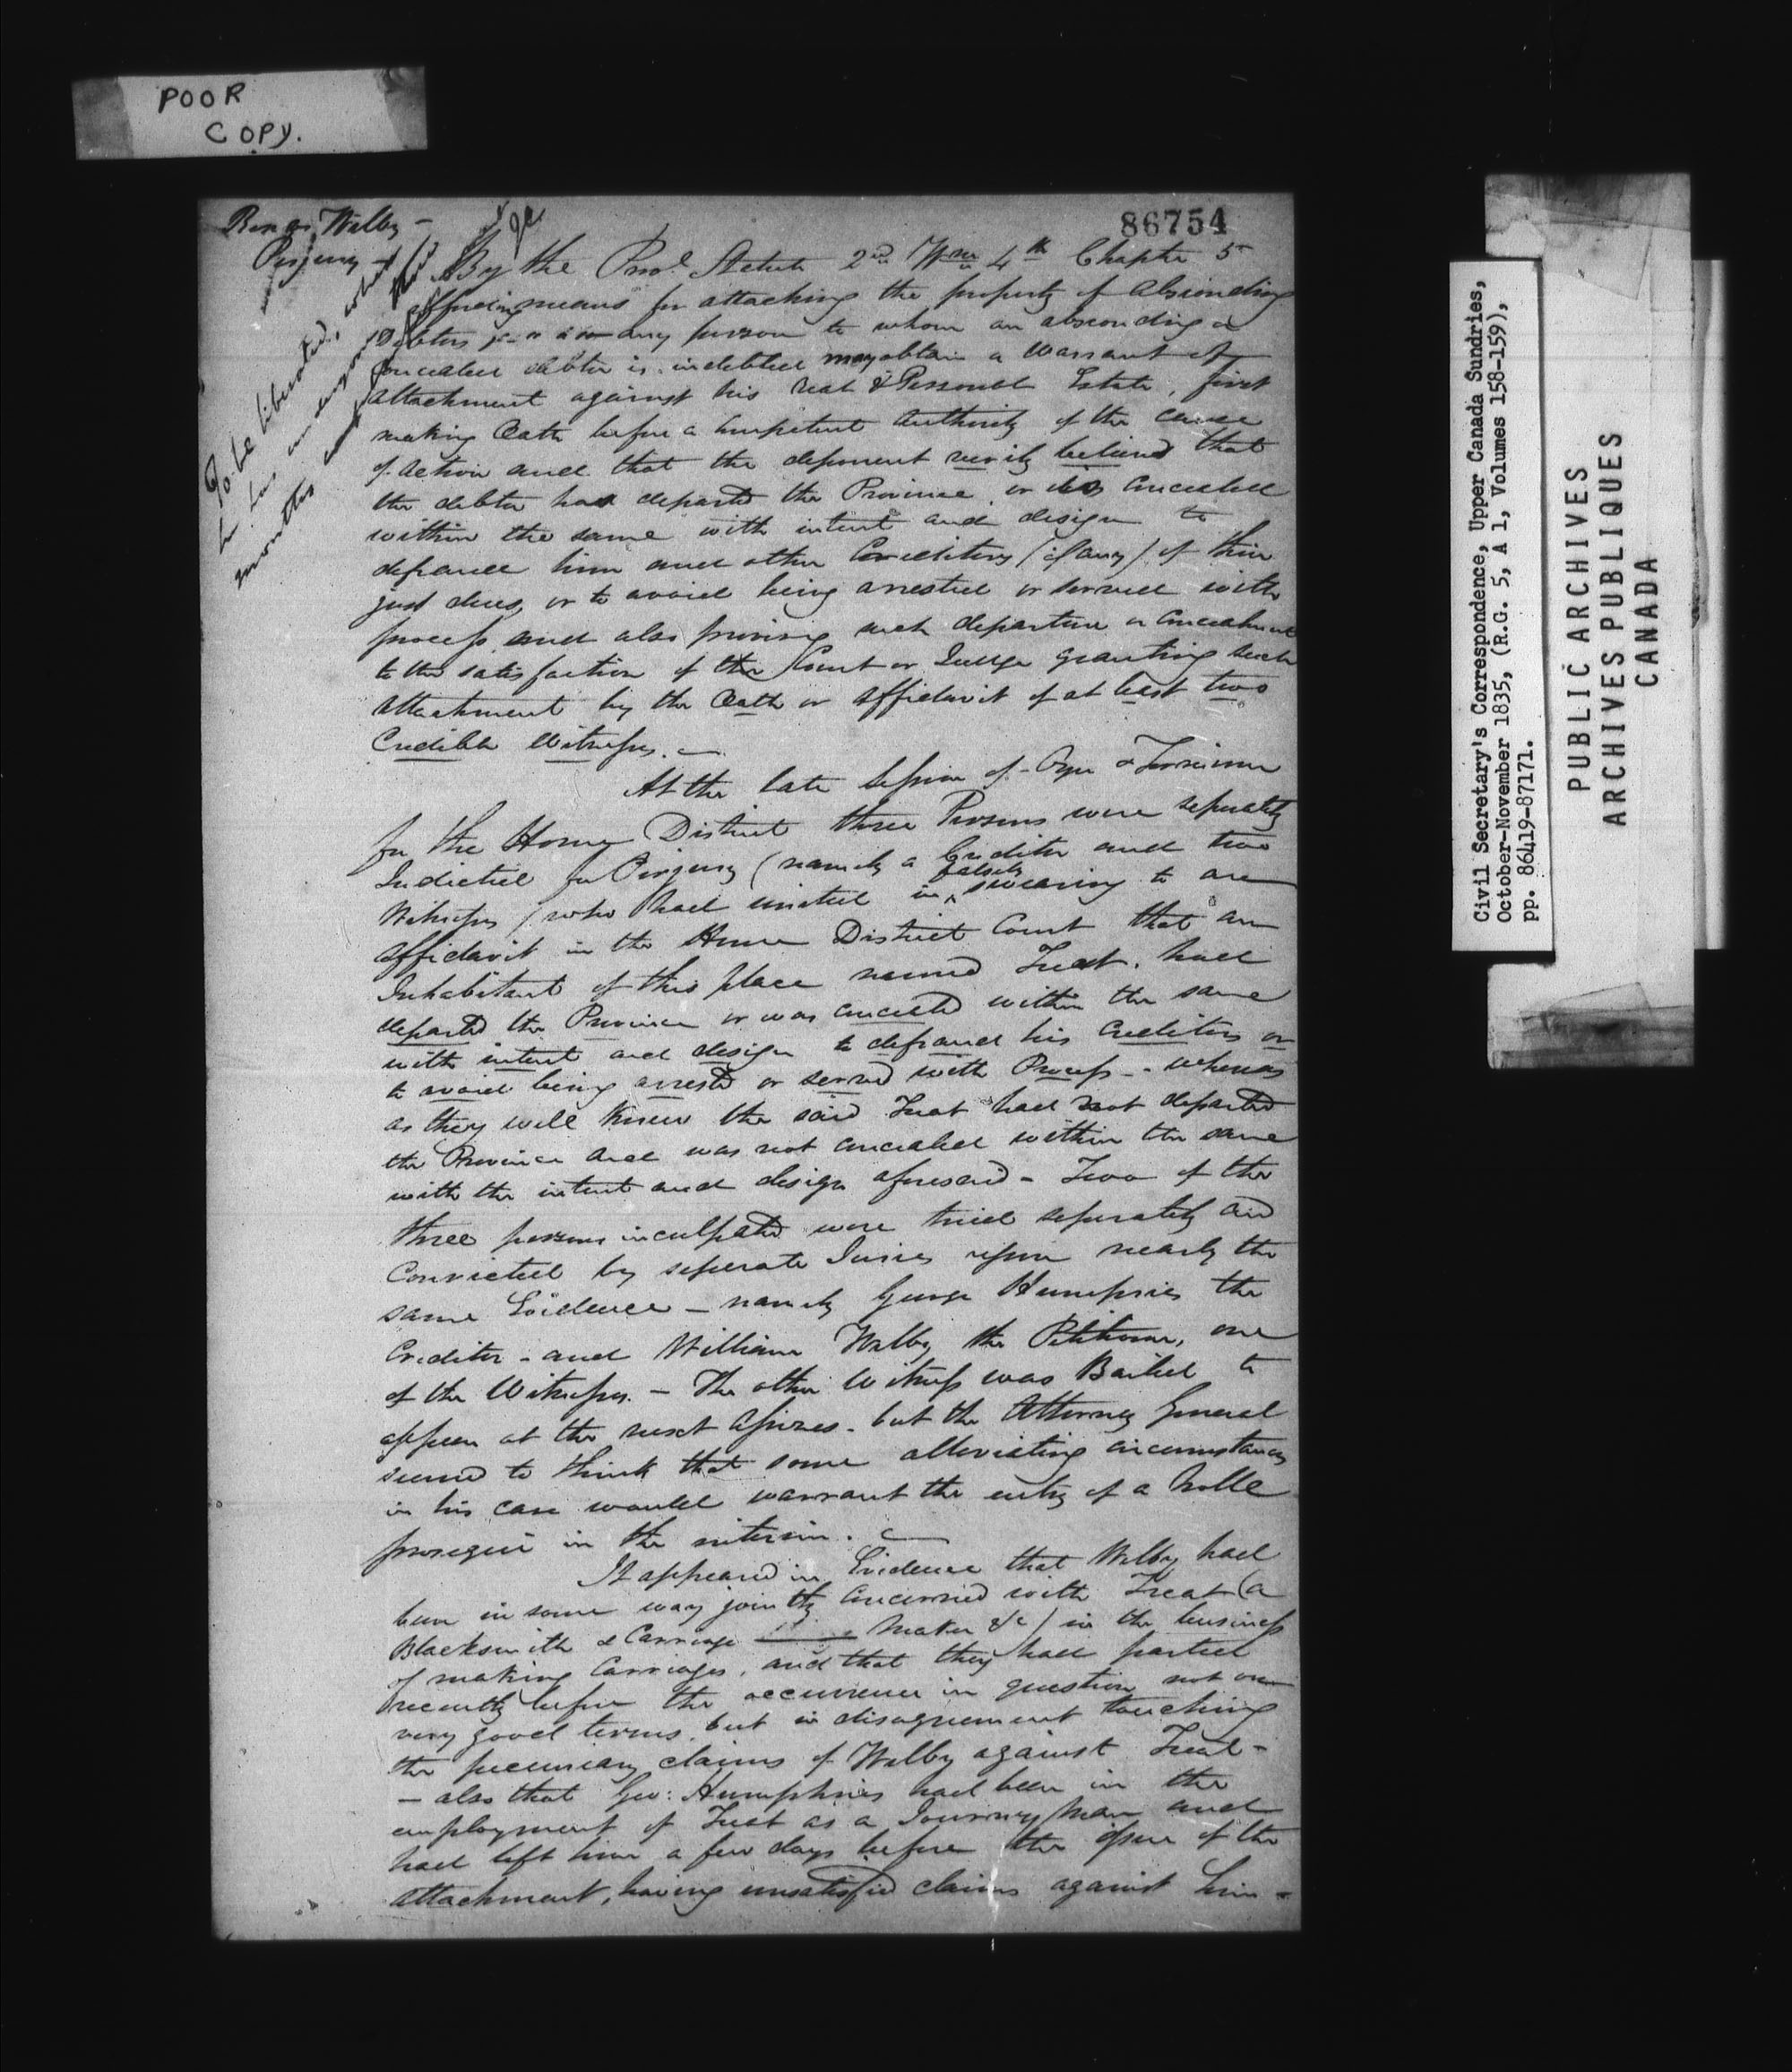 POOR
COPY.
86754
Rex vs Welby —
Perjury —
To be liberated, when
he has undergone three
months
By the Provl. Statute 2nd Wm 4th Chapter 5
affording means for attaching the property of absconding
Debtors any person to whom an absconding or
concealed debtor is indebted may obtain a Warrant of
attachment against his real & Personal Estate, first
making Oath before a competent Authority of the cause
of action and that the deponent verily believes that
the debtor has departed the Province or is concealed
within the same with intent and design to
defraud him and other Creditors (if any) of their
just dues, or to avoid being arrested or served with
process, and also proving such departure or concealment
to the satisfaction of the Court or Judge granting such
attachment by the Oath or affidavit of at least two
Credible Witnesses. —
At the late Session of Oyer & Terminer
for the Home District three Persons were separately
Indicted for Perjury (namely a Creditor and two
Witnesses) who had united in falsely swearing to an
affidavit in the Home District Court that an
Inhabitant of this place named Treat had
departed the Province or was concealed within the same
with intent and design to defraud his Creditors or
to avoid being arrested or served with Process — whereas
as they well knew the said Treat had not departed
the Province and was not concealed within the same
with the intent and design aforesaid — Two of the
three persons inculpated were tried separately and
Convicted by separate Juries upon nearly the
same Evidence — namely George Humphries the
Creditor — and William Welby the Petitioner, one
of the Witnesses. — The other Witness was Bailed to
appear at the next Assizes — but the Attorney General
seemed to think that some alleviating circumstances
in his case would warrant the entry of a Nolle
prosequi in the interim. —
It appeared in Evidence that Welby had
been in some way jointly concerned with Treat (a
Blacksmith & Carriage Maker &c) in the business
of making Carriages, and that they had parted
recently before the occurrence in question not on
very good terms, but in disagreement touching
the pecuniary claims of Welby against Treat —
— also that Geo: Humphries had been in the
employment of Treat as a Journeyman and
had left him a few days before the issue of the
attachment, having unsatisfied claims against him —
Civil Secretary's Correspondence, Upper Canada Sundries,
October-November 1835, (R.G. 5, A 1, Volumes 158-159),
pp. 86419-87171.
PUBLIC ARCHIVES
ARCHIVES PUBLIQUES
CANADA